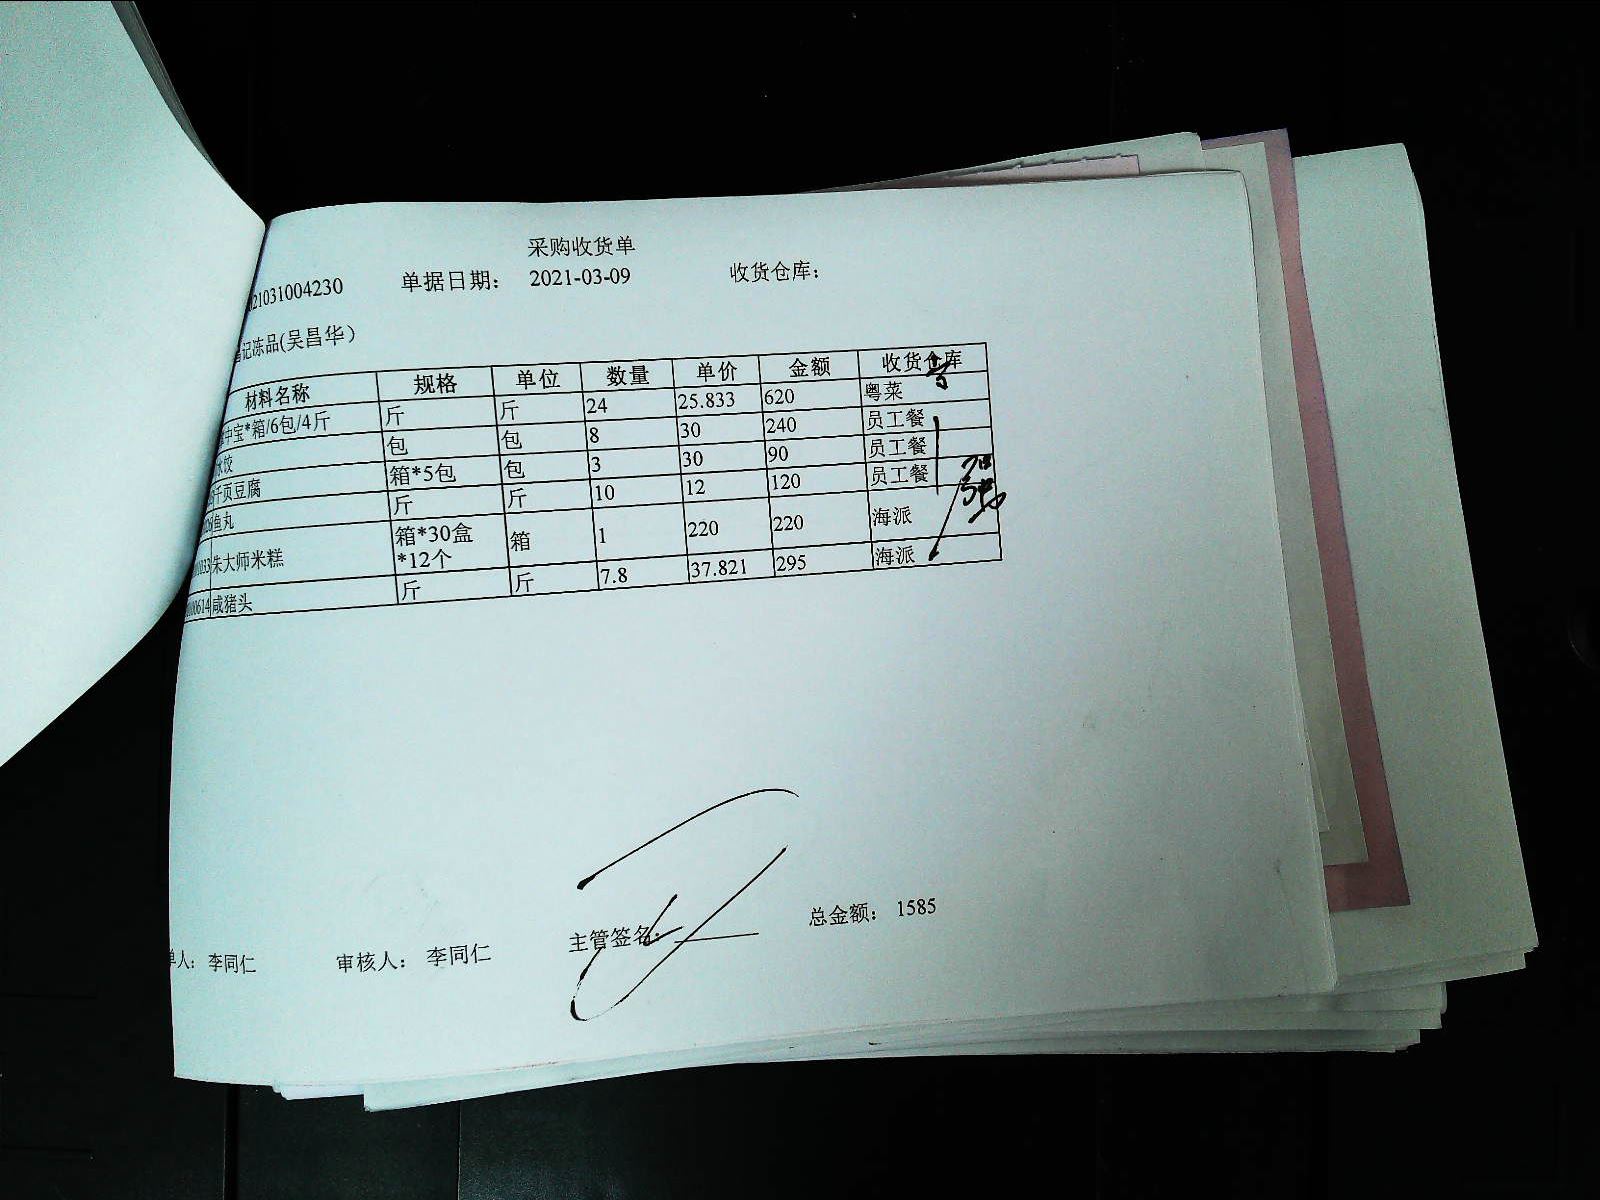 采购收货单
21031004230 单据日期： 2021-03-09 收货仓库：
记冻品(吴昌华）
材料名称 规格 单位 数量 单价 金额 收货仓库
中宝*箱/6包/4斤 斤 斤 24 25.833 620 粤菜
水饺 包 包 8 30 240 员工餐
千页豆腐 箱*5包 包 3 30 90 员工餐
鱼丸 斤 斤 10 12 120 员工餐
朱大师米糕 箱*30盒*12个 箱 1 220 220 海派
00614 咸猪头 斤 斤 7.8 37.821 295 海派
单人： 李同仁 审核人： 李同仁 主管签名： 总金额： 1585